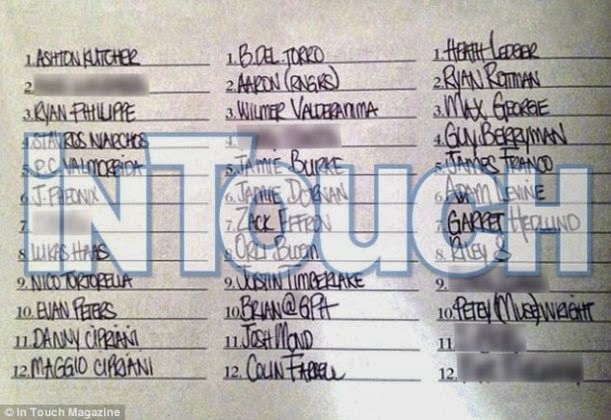 1. ASHTON KUTCHER
2.
3. RYAN PHILIPPE
4. STAVROS NIARCHOS
5. P.C. VALMORBIDA
6. J. PHEONIX
7.
8. LUKAS HAAS
9. NICO TORTORELLA
10. EVAN PETERS
11. DANNY CIPRIANI
12. MAGGIO CIPRIANI
1. B. DEL TORRO
2. AARON (RNGRS)
3. WILMER VALDERAMMA
4.
5. JAMIE BURKE
6. JAMIE DORNAN
7. ZACK EFFRON
8. ORLY BLOOM
9. JUSTIN TIMBERLAKE
10. BRIAN@GPA
11. JOSH MOND
12. COLIN FARRELL
1. HEATH LEDGER
2. RYAN ROTMAN
3. MAX GEORGE
4. GUY BERRYMAN
5. JAMES FRANCO
6. ADAM LEVINE
7. GARRET HEDLUND
8. RILEY S
9.
10. PETEY (MUSE) WRIGHT
11.
12.
INTOUCH
© In Touch Magazine